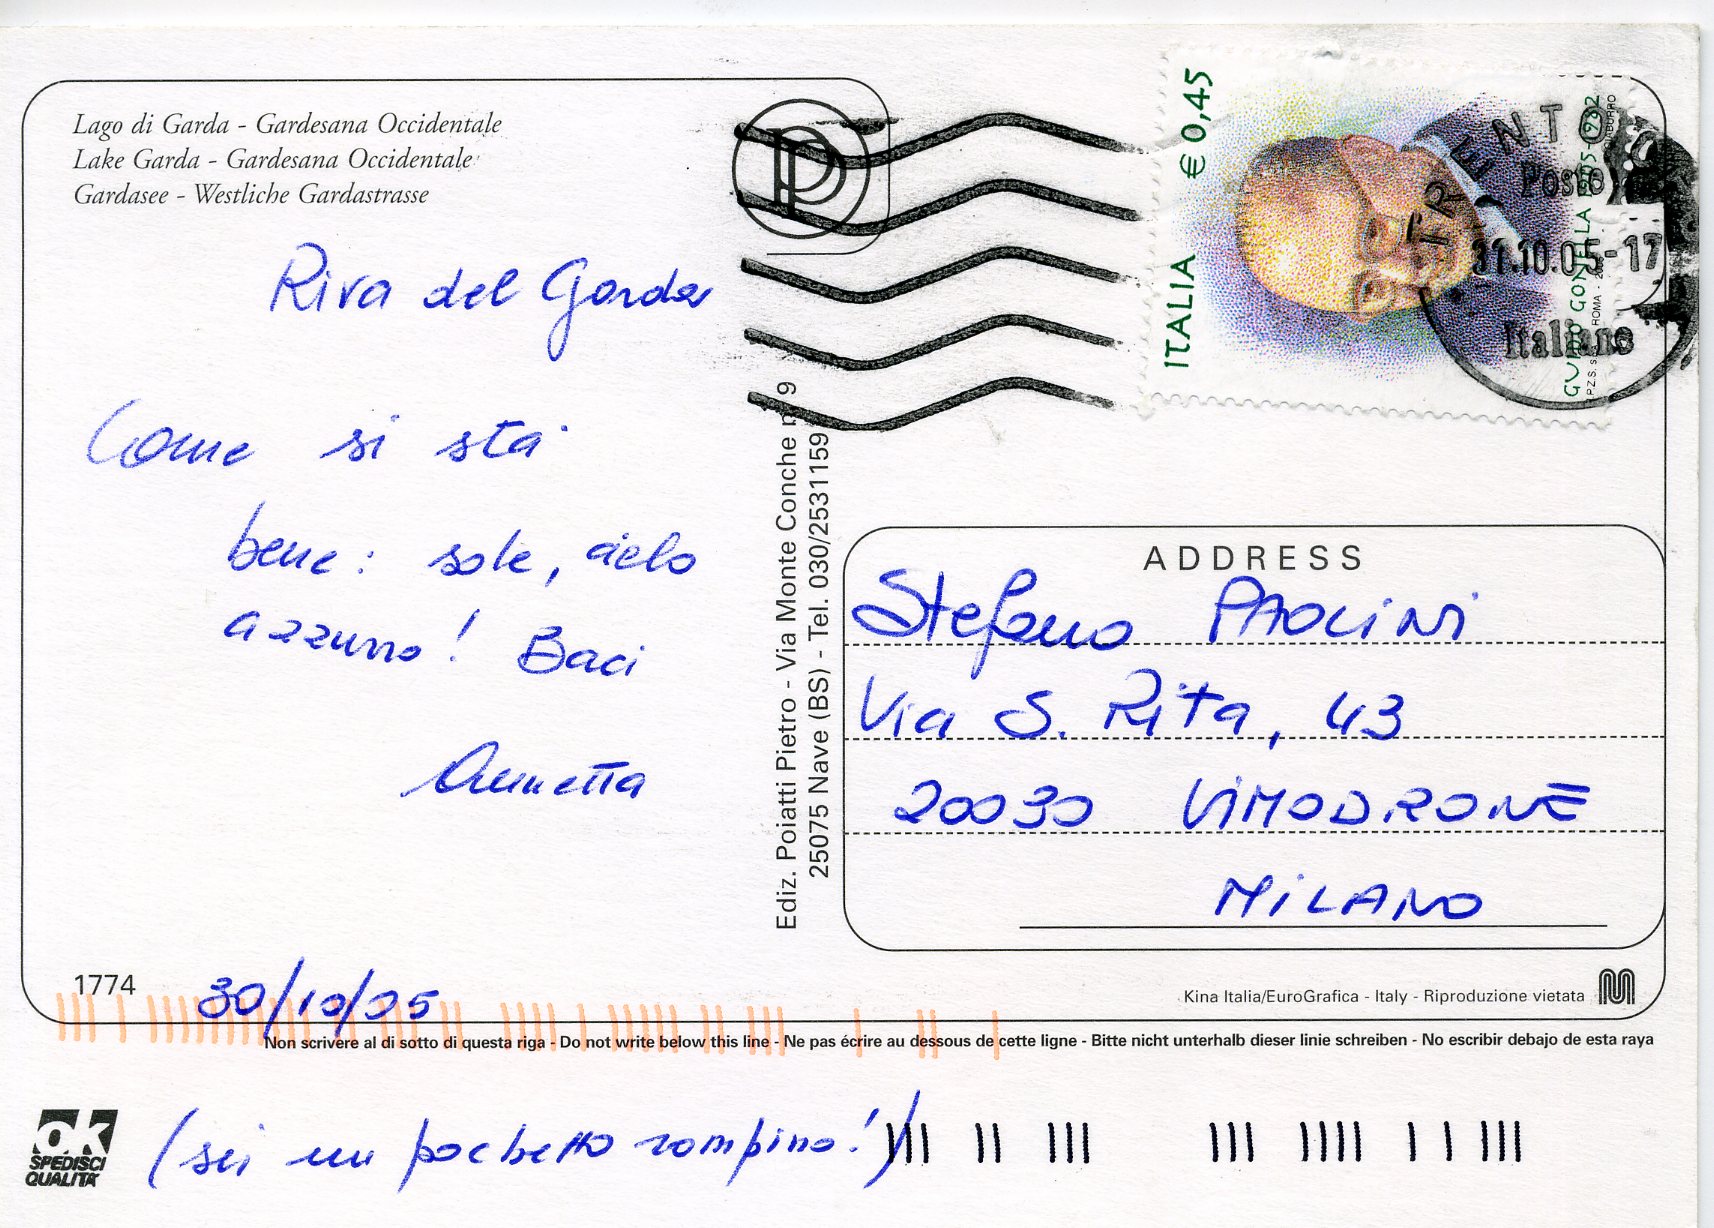 Lago di Garda - Gardesana Occidentale
Lake Garda - Gardesana Occidentale
Gardasee - Westliche Gardastrasse
Riva del Garda
Come si sta
bene: sole, cielo
azzurro! Baci
Annetta
30/10/05
1774
(sei un pochetto rompino!)
ok
SPEDISCI
QUALITÀ
Ediz. Poiatti Pietro - Via Monte Conche n. 9
25075 Nave (BS) - Tel. 030/2531159
P
ITALIA € 0,45
GUIDO GONELLA 1905 1982
TRENTO
Poste
31.10.05-17
Italiane
ADDRESS
Stefano PAOLINI
Via S. Rita, 43
20030 VIMODRONE
MILANO
Kina Italia/EuroGrafica - Italy - Riproduzione vietata
Non scrivere al di sotto di questa riga - Do not write below this line - Ne pas écrire au dessous de cette ligne - Bitte nicht unterhalb dieser linie schreiben - No escribir debajo de esta raya